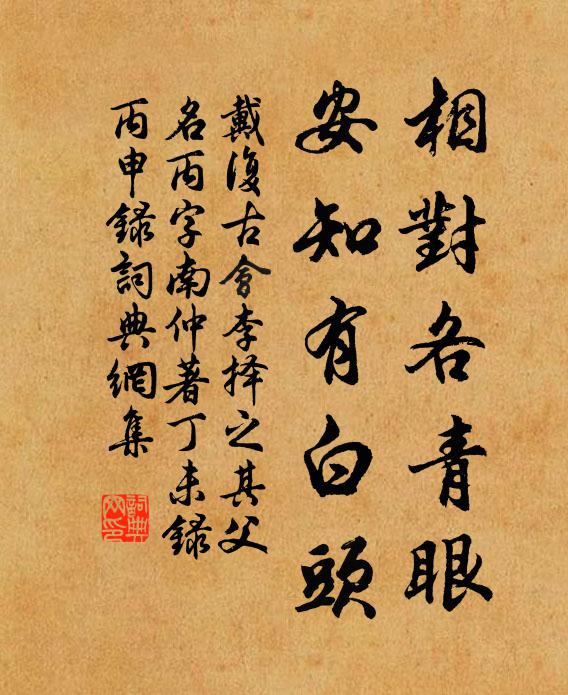 相對各青眼
安知有白頭
戴復古會李择之其父
名丙字南仲著丁未録
丙申録詞典網集
詞典网印